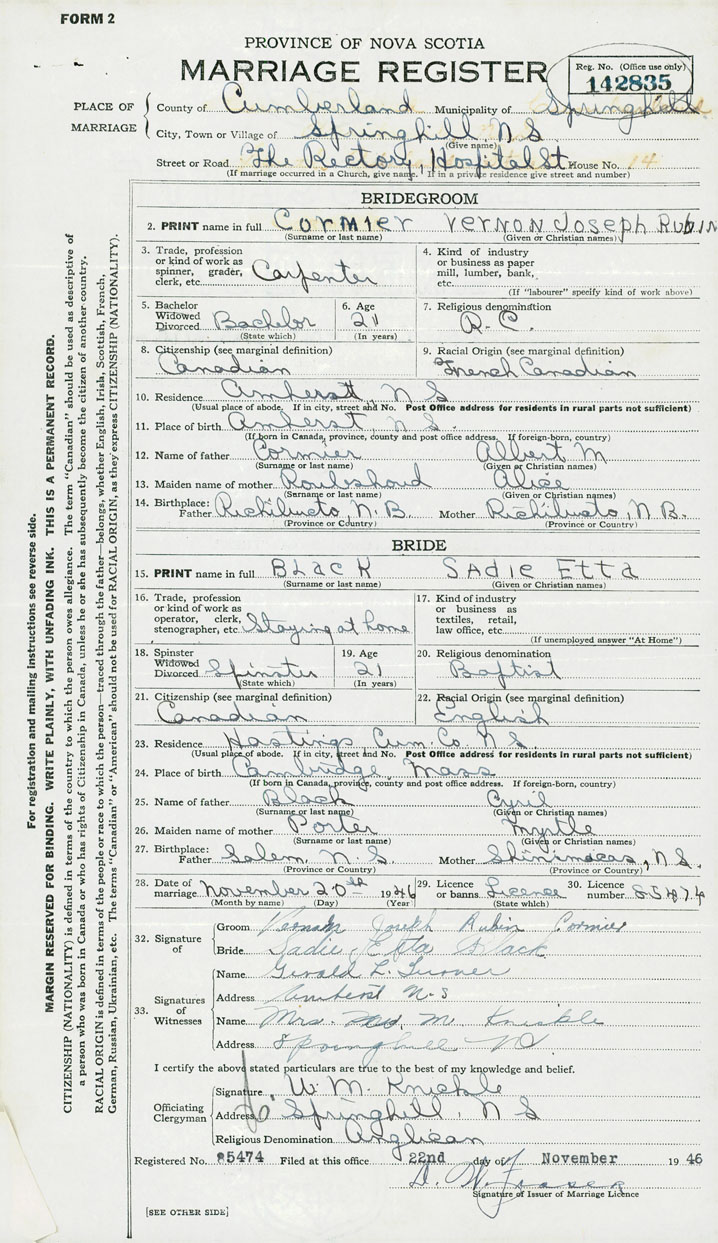 FORM 2
PROVINCE OF NOVA SCOTIA
MARRIAGE REGISTER
Reg. No. (Office use only)
142835
PLACE OF MARRIAGE
County of Cumberland Municipality of Springhill
City, Town or Village of Springhill, N S
(Give name)
Street or Road The Rectory, Hospital St House No. 14
(If marriage occurred in a Church, give name. If in a private residence give street and number)
BRIDEGROOM
2. PRINT name in full CORMIER VERNON JOSEPH RUBIN
(Surname or last name) (Given or Christian names)
3. Trade, profession or kind of work as spinner, grader, clerk, etc. Carpenter
4. Kind of industry or business as paper mill, lumber, bank, etc.
(If "labourer" specify kind of work above)
5. Bachelor Widowed Divorced Bachelor
(State which)
6. Age 21
(In years)
7. Religious denomination
R. C.
8. Citizenship (see marginal definition)
Canadian
9. Racial Origin (see marginal definition)
French Canadian
10. Residence Amherst, N S
(Usual place of abode. If in city, street and No. Post Office address for residents in rural parts not sufficient)
11. Place of birth Amherst, N. S.
(If born in Canada, province, county and post office address. If foreign-born, country)
12. Name of father Cormier Albert M
(Surname or last name) (Given or Christian names)
13. Maiden name of mother Alice
(Surname or last name) (Given or Christian names)
14. Birthplace: Father Richibucto, N. B. Mother Richibucto, N B.
(Province or Country) (Province or Country)
BRIDE
15. PRINT name in full BLACK SADIE ETTA
(Surname or last name) (Given or Christian names)
16. Trade, profession or kind of work as operator, clerk, stenographer, etc. Staying at home
17. Kind of industry or business as textiles, retail, law office, etc.
(If unemployed answer "At Home")
18. Spinster Widowed Divorced Spinster
(State which)
19. Age 21
(In years)
20. Religious denomination
Baptist
21. Citizenship (see marginal definition)
Canadian
22. Racial Origin (see marginal definition)
English
23. Residence Hastings Cum. Co. N. S.
(Usual place of abode. If in city, street and No. Post Office address for residents in rural parts not sufficient)
24. Place of birth Cambridge, Mass
(If born in Canada, province, county and post office address. If foreign-born, country)
25. Name of father Black Cyril
(Surname or last name) (Given or Christian names)
26. Maiden name of mother Porter Myrtle
(Surname or last name) (Given or Christian names)
27. Birthplace: Father Salem, N. S. Mother Shinimicas, N. S.
(Province or Country) (Province or Country)
28. Date of marriage November 20th 1946
(Month by name) (Day) (Year)
29. Licence or banns. Licence
(State which)
30. Licence number 85474
32. Signature of
Groom Vernon Joseph Rubin Cormier
Bride Sadie Etta Black
33. Signatures of Witnesses
Name Gerald L. Turner
Address Amherst N. S
Name Mrs. M Knickle
Address Springhill NS
I certify the above stated particulars are true to the best of my knowledge and belief.
Officiating Clergyman
Signature W. M. Knickle
Address Springhill, N S
Religious Denomination Anglican
Registered No. 5474 Filed at this office 22nd day of November 1946
D. W. Fraser
Signature of Issuer of Marriage Licence
[SEE OTHER SIDE]
For registration and mailing instructions see reverse side.
MARGIN RESERVED FOR BINDING. WRITE PLAINLY, WITH UNFADING INK. THIS IS A PERMANENT RECORD.
CITIZENSHIP (NATIONALITY) is defined in terms of the country to which the person owes allegiance. The term "Canadian" should be used as descriptive of
a person who was born in Canada or who has rights of Citizenship in Canada, unless he or she has subsequently become the citizen of another country.
RACIAL ORIGIN is defined in terms of the people or race to which the person—traced through the father—belongs, whether English, Irish, Scottish, French,
German, Russian, Ukrainian, etc. The terms "Canadian" or "American" should not be used for RACIAL ORIGIN, as they express CITIZENSHIP (NATIONALITY).